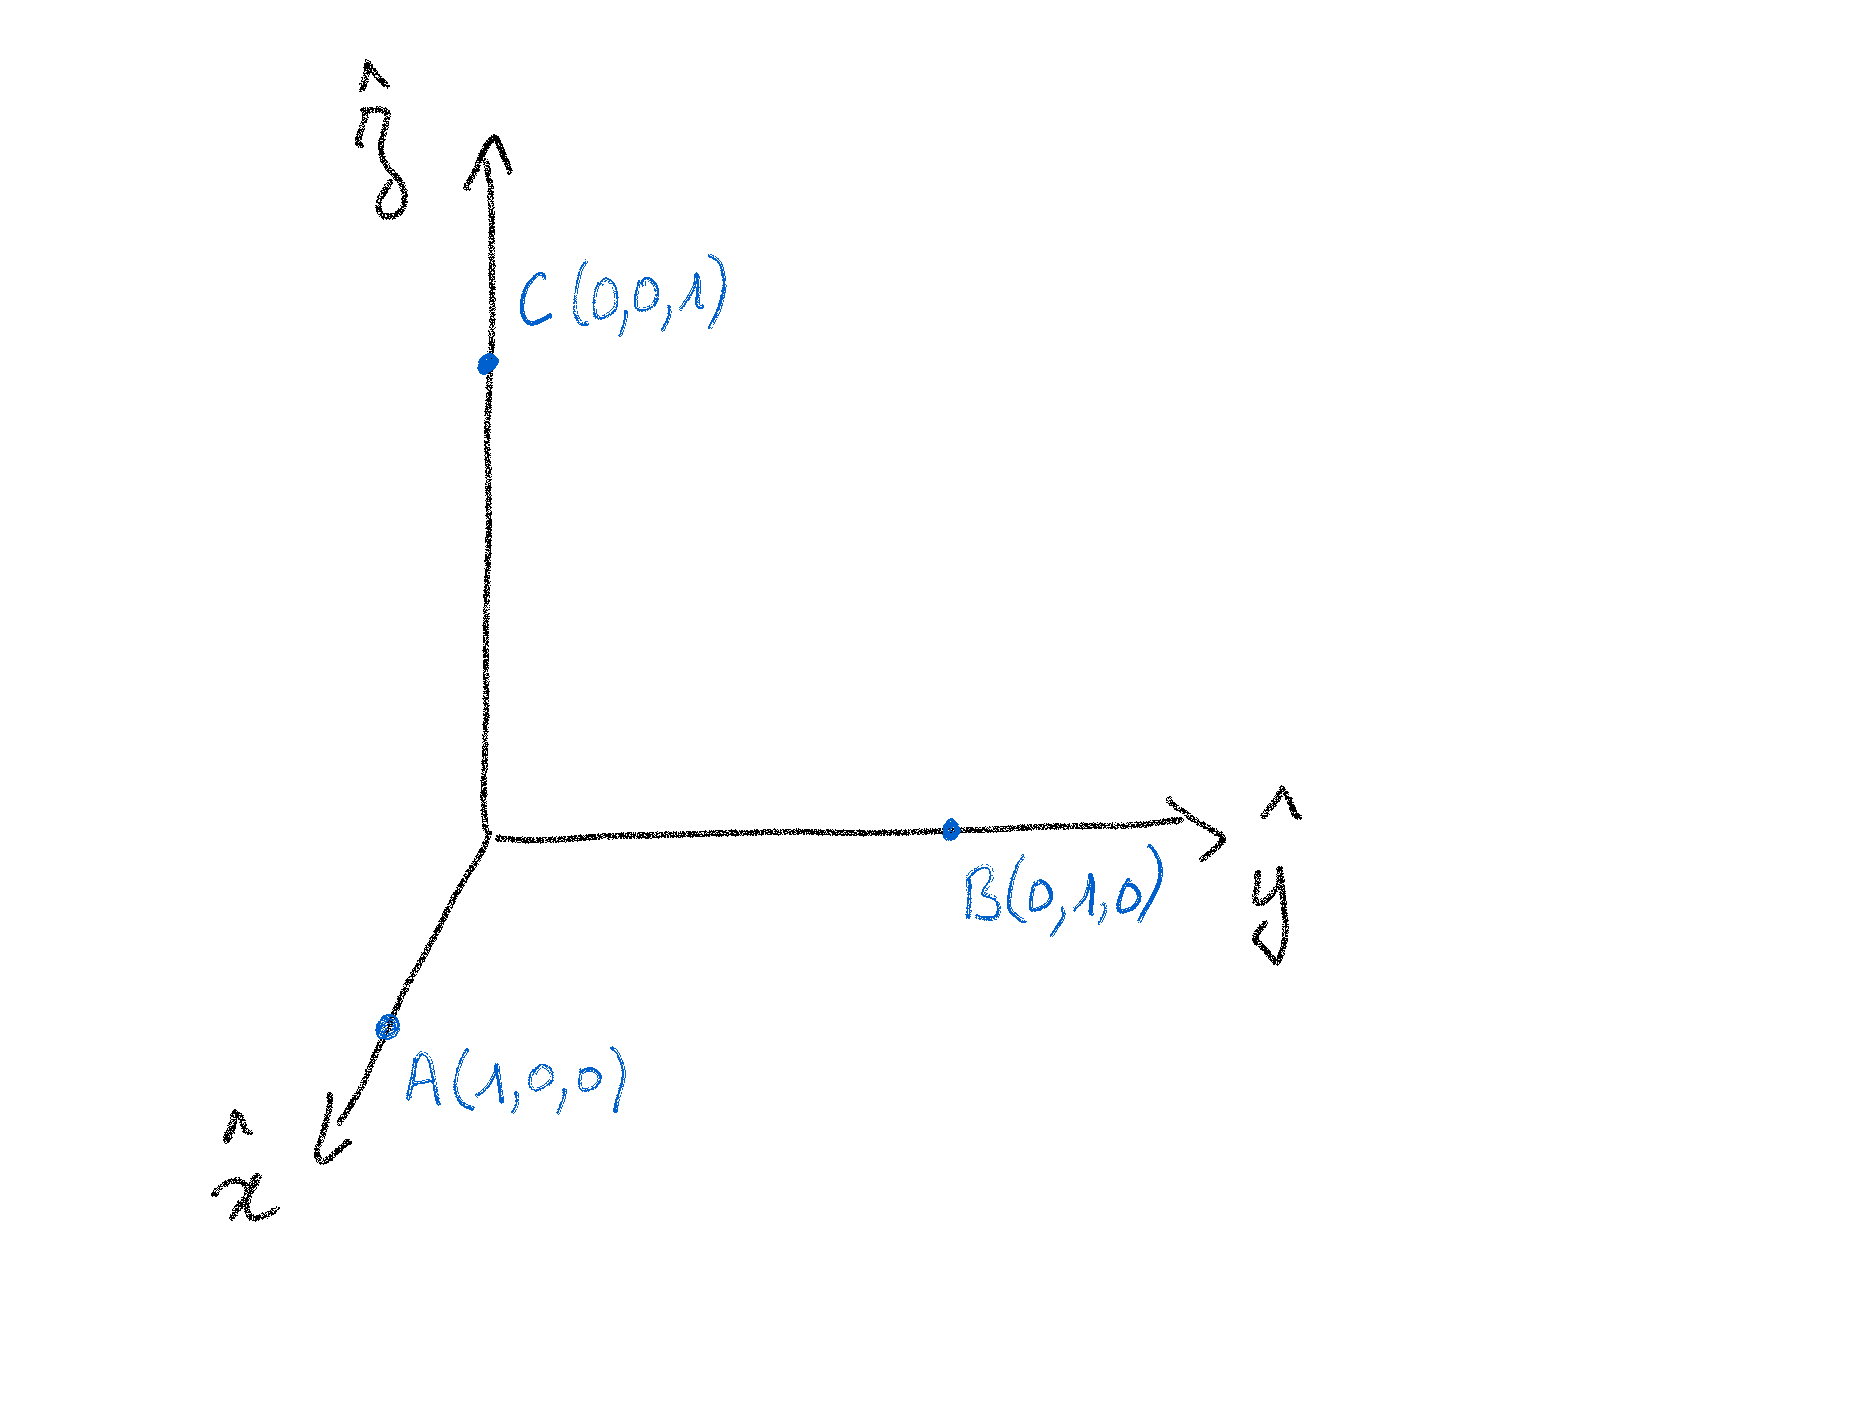 ẑ
C(0,0,1)
ŷ
B(0,1,0)
A(1,0,0)
x̂